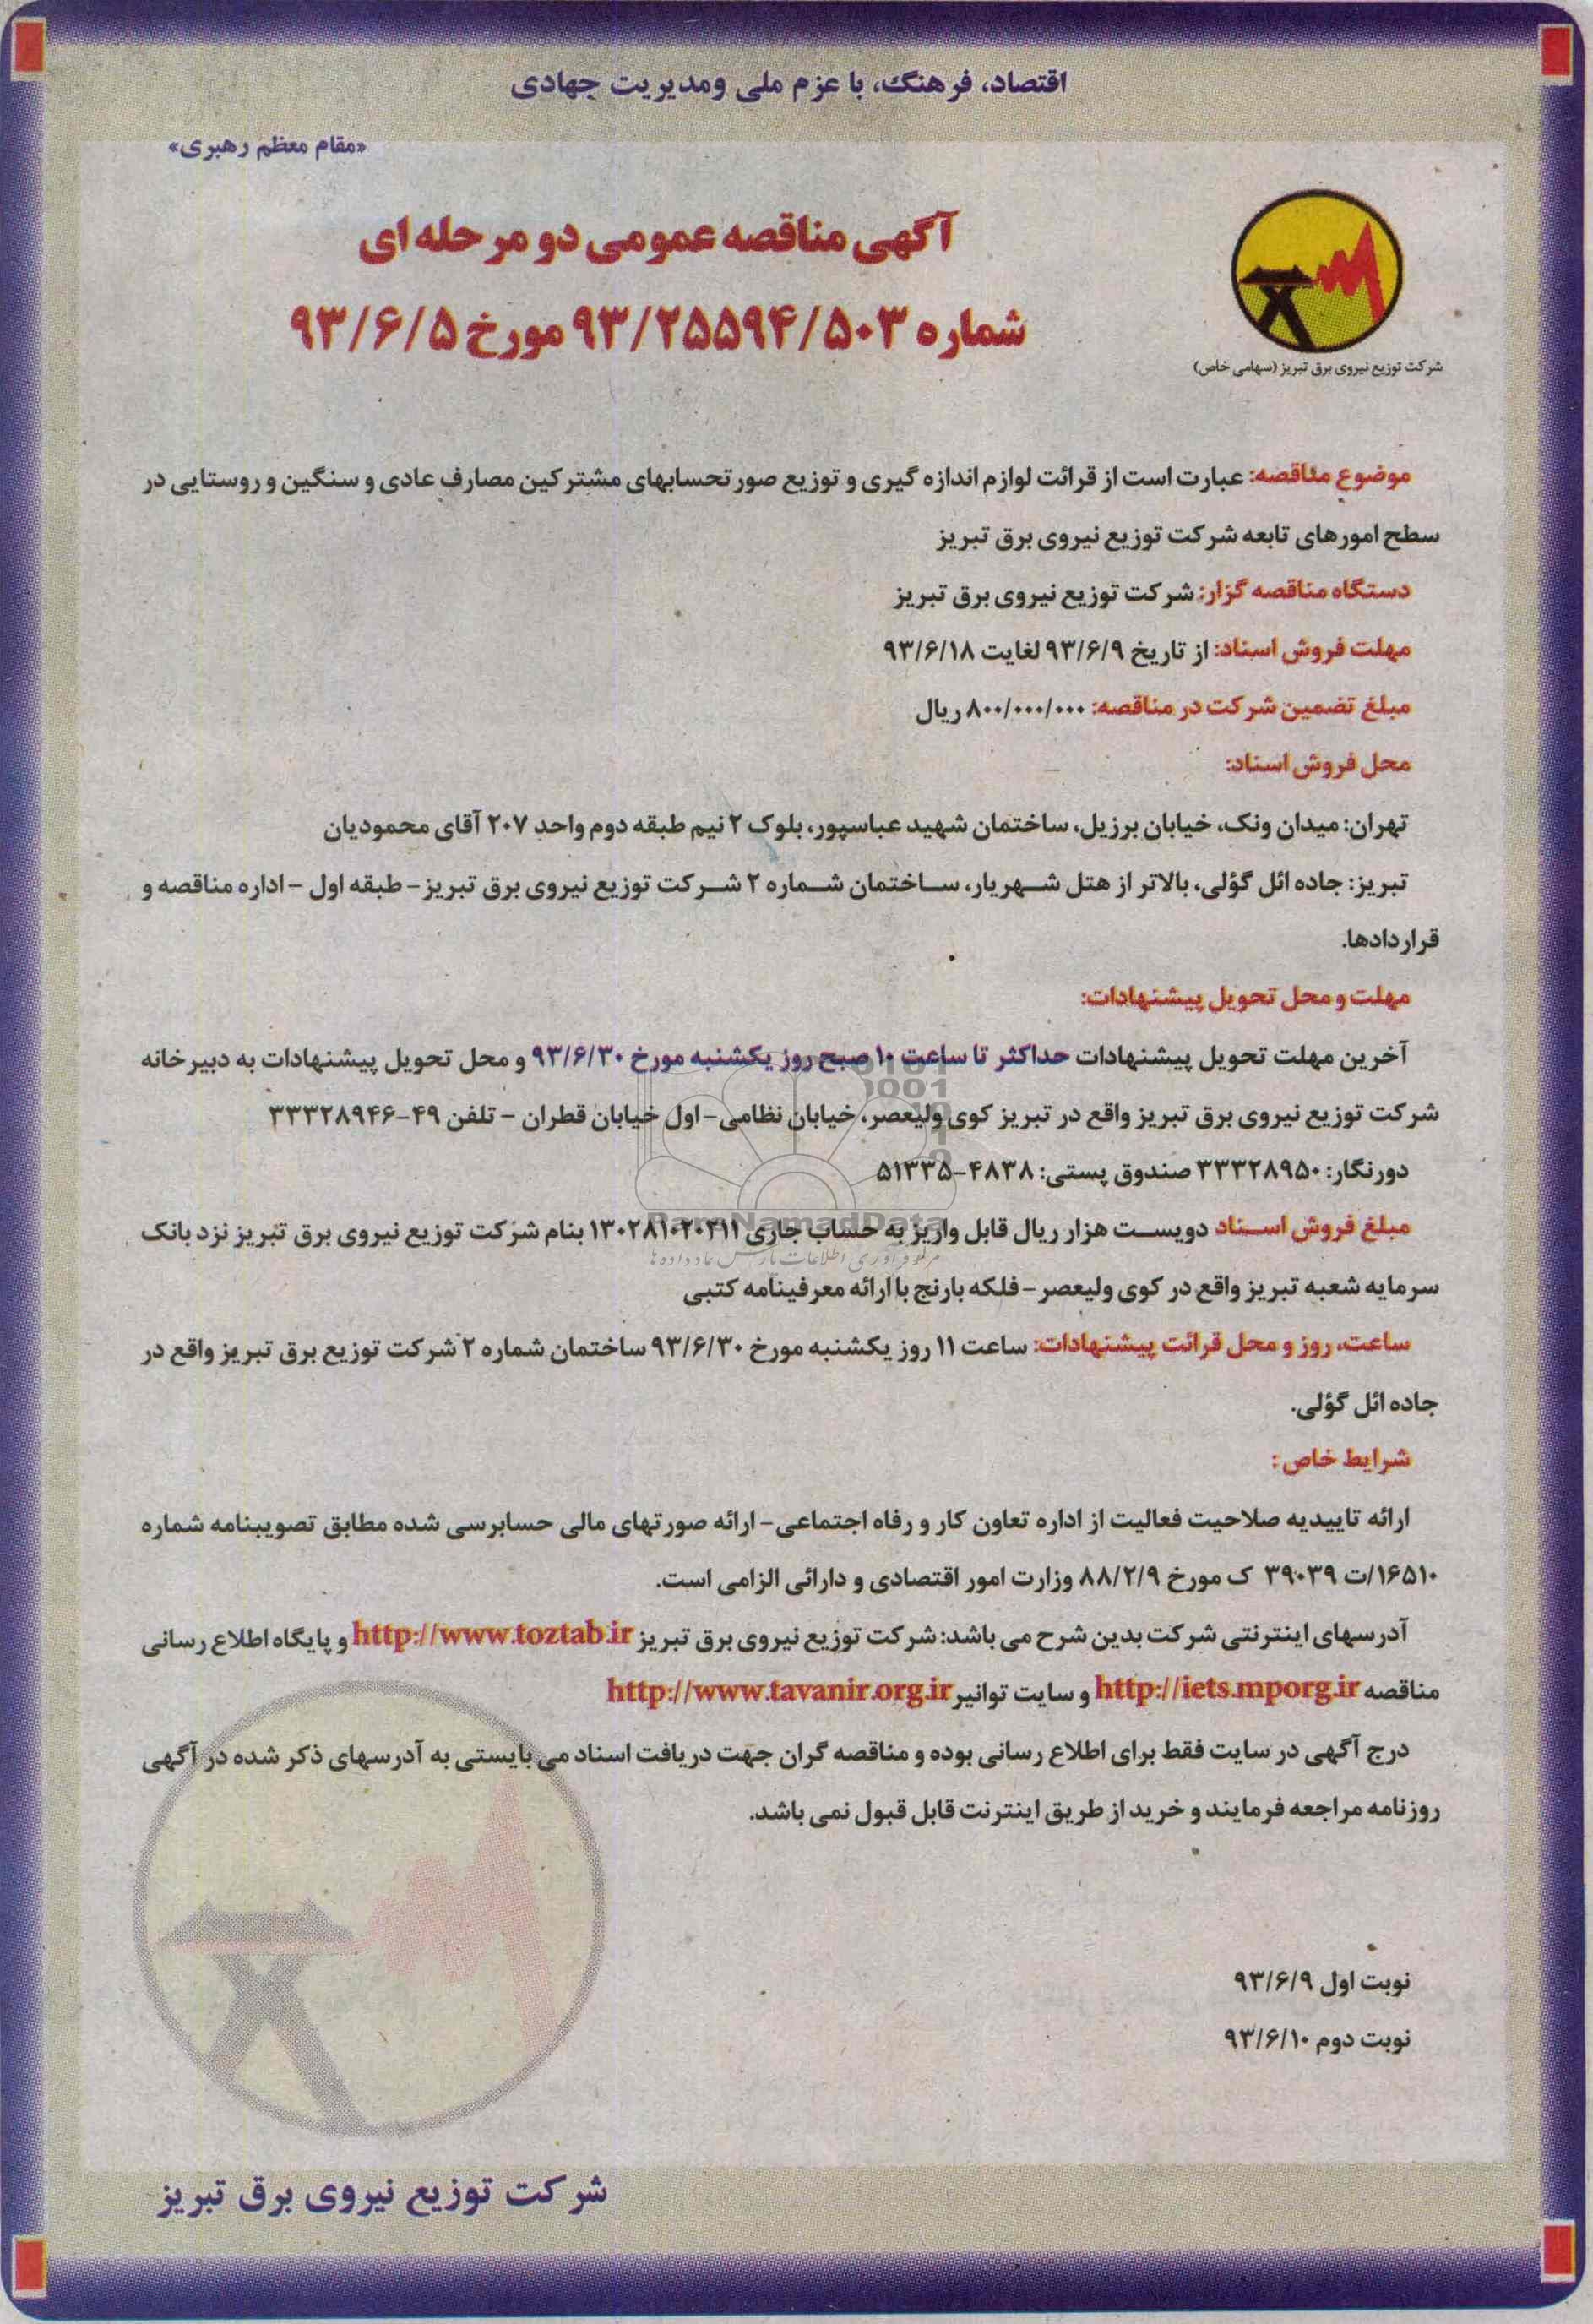 اقتصاد، فرهنگ، با عزم ملی ومدیریت جهادی
«مقام معظم رهبری»
آگهی مناقصه عمومی دو مرحله ای
شماره ۹۳/۲۵۵۹۴/۵۰۳ مورخ ۹۳/۶/۵
شرکت توزیع نیروی برق تبریز (سهامی خاص)
موضوع مناقصه: عبارت است از قرائت لوازم اندازه گیری و توزیع صورتحسابهای مشترکین مصارف عادی و سنگین و روستایی در
سطح امورهای تابعه شرکت توزیع نیروی برق تبریز
دستگاه مناقصه گزار: شرکت توزیع نیروی برق تبریز
مهلت فروش اسناد: از تاریخ ۹۳/۶/۹ لغایت ۹۳/۶/۱۸
مبلغ تضمین شرکت در مناقصه: ۸۰۰/۰۰۰/۰۰۰ ریال
محل فروش اسناد:
تهران: میدان ونک، خیابان برزیل، ساختمان شهید عباسپور، بلوک ۲ نیم طبقه دوم واحد ۲۰۷ آقای محمودیان
تبریز: جاده ائل گؤلی، بالاتر از هتل شهریار، ساختمان شماره ۲ شرکت توزیع نیروی برق تبریز- طبقه اول - اداره مناقصه و
قراردادها.
مهلت و محل تحویل پیشنهادات:
آخرین مهلت تحویل پیشنهادات حداکثر تا ساعت ۱۰ صبح روز یکشنبه مورخ ۹۳/۶/۳۰ و محل تحویل پیشنهادات به دبیرخانه
شرکت توزیع نیروی برق تبریز واقع در تبریز کوی ولیعصر، خیابان نظامی- اول خیابان قطران - تلفن ۴۹-۳۳۳۲۸۹۴۶
دورنگار: ۳۳۳۲۸۹۵۰ صندوق پستی: ۴۸۳۸-۵۱۳۳۵
ParsNamadData
مبلغ فروش اسناد دویست هزار ریال قابل واریز به حساب جاری ۱۳۰۲۸۱۰۲۰۲۱۱ بنام شرکت توزیع نیروی برق تبریز نزد بانک
سرمایه شعبه تبریز واقع در کوی ولیعصر - فلکه بارنج با ارائه معرفینامه کتبی
ساعت، روز و محل قرائت پیشنهادات: ساعت ۱۱ روز یکشنبه مورخ ۹۳/۶/۳۰ ساختمان شماره ۲ شرکت توزیع برق تبریز واقع در
جاده ائل گؤلی.
شرایط خاص :
ارائه تاییدیه صلاحیت فعالیت از اداره تعاون کار و رفاه اجتماعی- ارائه صورتهای مالی حسابرسی شده مطابق تصویبنامه شماره
۱۶۵۱۰/ت ۳۹۰۳۹ ک مورخ ۸۸/۲/۹ وزارت امور اقتصادی و دارائی الزامی است.
آدرسهای اینترنتی شرکت بدین شرح می باشد: شرکت توزیع نیروی برق تبریز http://www.toztab.ir و پایگاه اطلاع رسانی
مناقصه http://iets.mporg.ir و سایت توانیر http://www.tavanir.org.ir
درج آگهی در سایت فقط برای اطلاع رسانی بوده و مناقصه گران جهت دریافت اسناد می بایستی به آدرسهای ذکر شده در آگهی
روزنامه مراجعه فرمایند و خرید از طریق اینترنت قابل قبول نمی باشد.
نوبت اول ۹۳/۶/۹
نوبت دوم ۹۳/۶/۱۰
شرکت توزیع نیروی برق تبریز